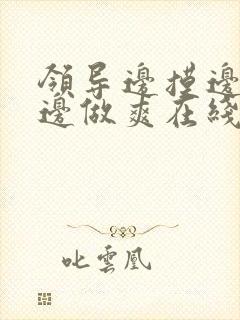 領导邊摸邊
邊做爽在綫
叱雲凰